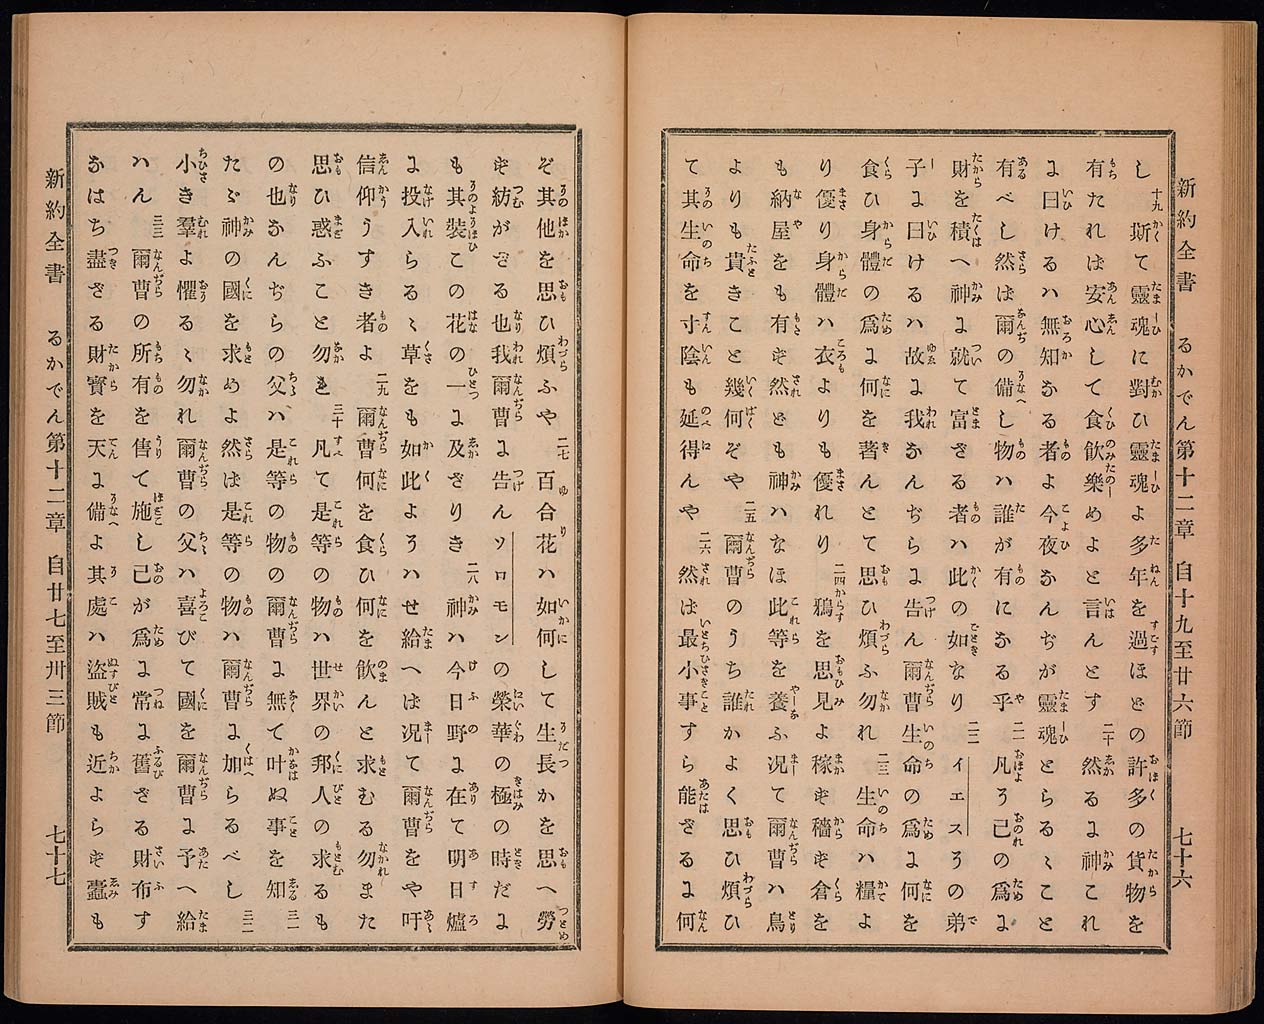 新約全書　るかでん第十二章　自十九至廿六節　七十六
し十九斯て靈魂に對ひ靈魂よ多年を過ほどの許多の貨物を
有たれは安心して食飮樂めよと言んとす二十然るに神これ
に曰けるハ無知なる者よ今夜なんぢが靈魂とらるゝこと
有べし然ば爾の備し物ハ誰が有になる乎二一凡そ己の爲に
財を積へ神に就て富ざる者ハ此の如なり二二イエスその弟
子に曰けるハ故に我なんぢらに告ん爾曹生命の爲に何を
食ひ身體の爲に何を著んとて思ひ煩ふ勿れ二三生命ハ糧よ
り優り身體ハ衣よりも優れり二四鴉を思見よ稼ず穡ず倉を
も納屋をも有ず然ども神ハなほ此等を養ふ况て爾曹ハ鳥
よりも貴きこと幾何ぞや二五爾曹のうち誰かよく思ひ煩ひ
て其生命を寸陰も延得んや二六然ば最小事すら能ざるに何
ぞ其他を思ひ煩ふや二七百合花ハ如何して生長かを思へ勞
ず紡がざる也我爾曹に告んソロモンの榮華の極の時だに
も其裝この花の一に及ざりき二八神ハ今日野に在て明日爐
に投入らるゝ草をも如此よそハせ給へば况て爾曹をや吁
信仰うすき者よ二九爾曹何を食ひ何を飮んと求むる勿また
思ひ惑ふこと勿れ三十凡て是等の物ハ世界の邦人の求るも
の也なんぢらの父ハ是等の物の爾曹に無て叶ぬ事を知三一
たゞ神の國を求めよ然ば是等の物ハ爾曹に加らるべし三二
小き羣よ懼るゝ勿れ爾曹の父ハ喜びて國を爾曹に予へ給
ハん三三爾曹の所有を售て施し己が爲に常に舊ざる財布す
なはち盡ざる財寳を天に備よ其處ハ盜賊も近よらず蠹も
新約全書　るかでん第十二章　自廿七至卅三節　七十七